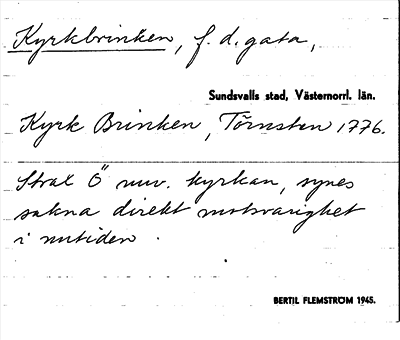 Kyrkbrinken, f. d. gata,
Sundsvalls stad, Västernorrl. län.
Kyrk Brinken, Törnsten 1776.
Strax Ö nuv. kyrkan, synes
sakna direkt motsvarighet
i nutiden.
BERTIL FLEMSTRÖM 1945.